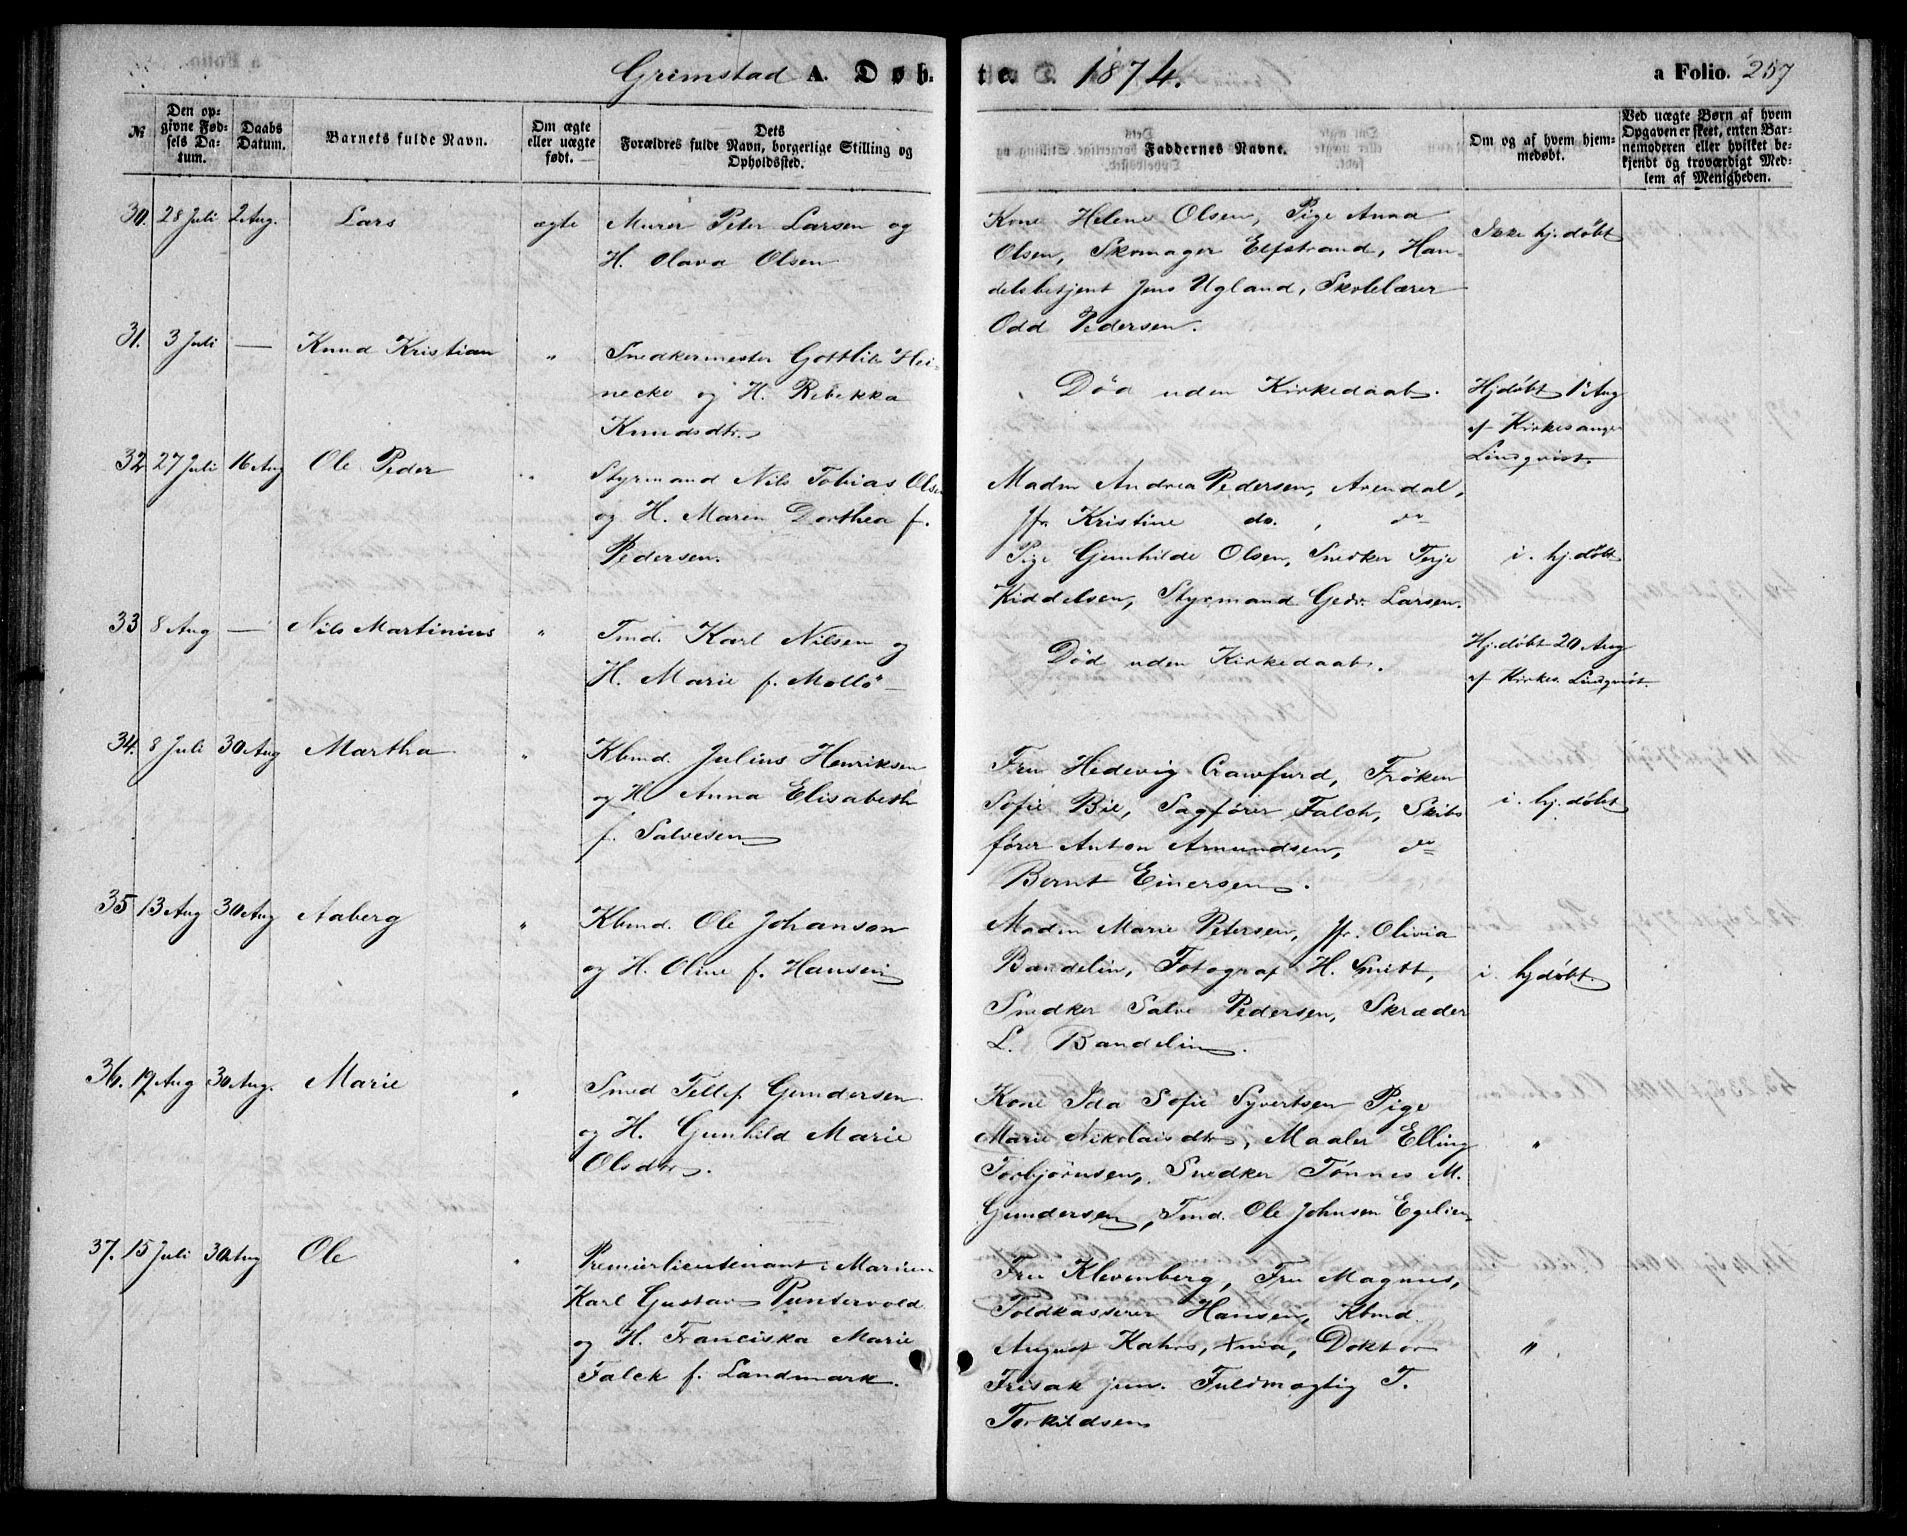 Grimstad A. Døbte. 1874. a Folio. 257
№
Den opgivne Fødsels Datum.
Daabs Datum.
Barnets fulde Navn.
Om ægte eller uægte født.
Dets Forældres fulde Navn, borgerlige Stilling og Opholdssted.
Faddernes Navne.
Om og af hvem hjemmedøbt.
Ved uægte Børn af hvem Opgaven er skeet, enten Barnemoderen eller hvilket bekjendt og troværdigt Medlem af Menigheden.
30. 28 Juli 2 Aug. Lars ægte Murer Peter Larsen og
H. Olava Olsen
Kone Helene Olsen, Pige Anna
Olsen, Skomager Elfstrand, Han-
delsbetjent Jens Ugland, Skolelærer
Odd Pedersen.
Ikke hj.døbt
31. 3 Juli — Knud Kristian " Snedkermester Gottlib Hei-
necke og H. Rebekka
Knudsdtr.
Død uden Kirkedaab.
Hj.døbt 1 Aug
af Kirkesanger
Lindqvist.
32 27 Juli 16 Aug Ole Peder " Styrmand Nils Tobias Olsen
og H. Maren Dorthea f.
Pedersen.
Madm Andrea Pedersen, Arendal,
Jfr Kristine do. , do
Pige Gunhilde Olsen, Snedker Terje
Kiddelsen, Styrmand Gedr. Larsen.
i. hj.døbt
33 8 Aug — Nils Martinius " Tmd. Karl Nilsen og
H. Marie f. Mollö
Død uden Kirkedaab.
Hj.døbt 20 Aug
af Kirkes. Lindqvist.
34. 8 Juli 30 Aug Martha " Kbmd. Julius Henriksen
og H. Anna Elisabeth
f. Salvesen
Fru Hedevig Crawfurd, Frøken
Sofie Bie, Sagfører Falch, Skibs
fører Anton Amundsen, do
Bernt Einersen.
i. hj.døbt
35 13 Aug 30 Aug Aaberg " Kbmd. Ole Johanson
og H. Oline f. Hansen
Madm Marie Petersen, Jfr. Olivia
Bandelin, Fotograf H. Smitt,
Snedker Salve Pedersen, Skræder
L. Bandelin.
i. hjdøbt.
36. 19 Aug 30 Aug. Marie " Smed Tellef Gundersen
og H. Gunhild Marie
Olsdtr.
Kone Ida Sofie Syvertsen Pige
Marie Nikolaisdtr, Maaler Elling
Torbjörnsen, Snedker Tønnes M.
Gundersen, Tmd. Ole Johnsen Egelien
"
37. 15 Juli 30 Aug Ole " Premierlieutenant i Marinen
Karl Gustav Puntervold
og H. Franciska Marie
Falck f. Landmark.
Fru Klevenberg, Fru Magnus,
Toldkasserer Hansen, Kbmd.
August Kahrs, Doktor
Frisak jun. Fuldmægtig T.
Torkildsen
"